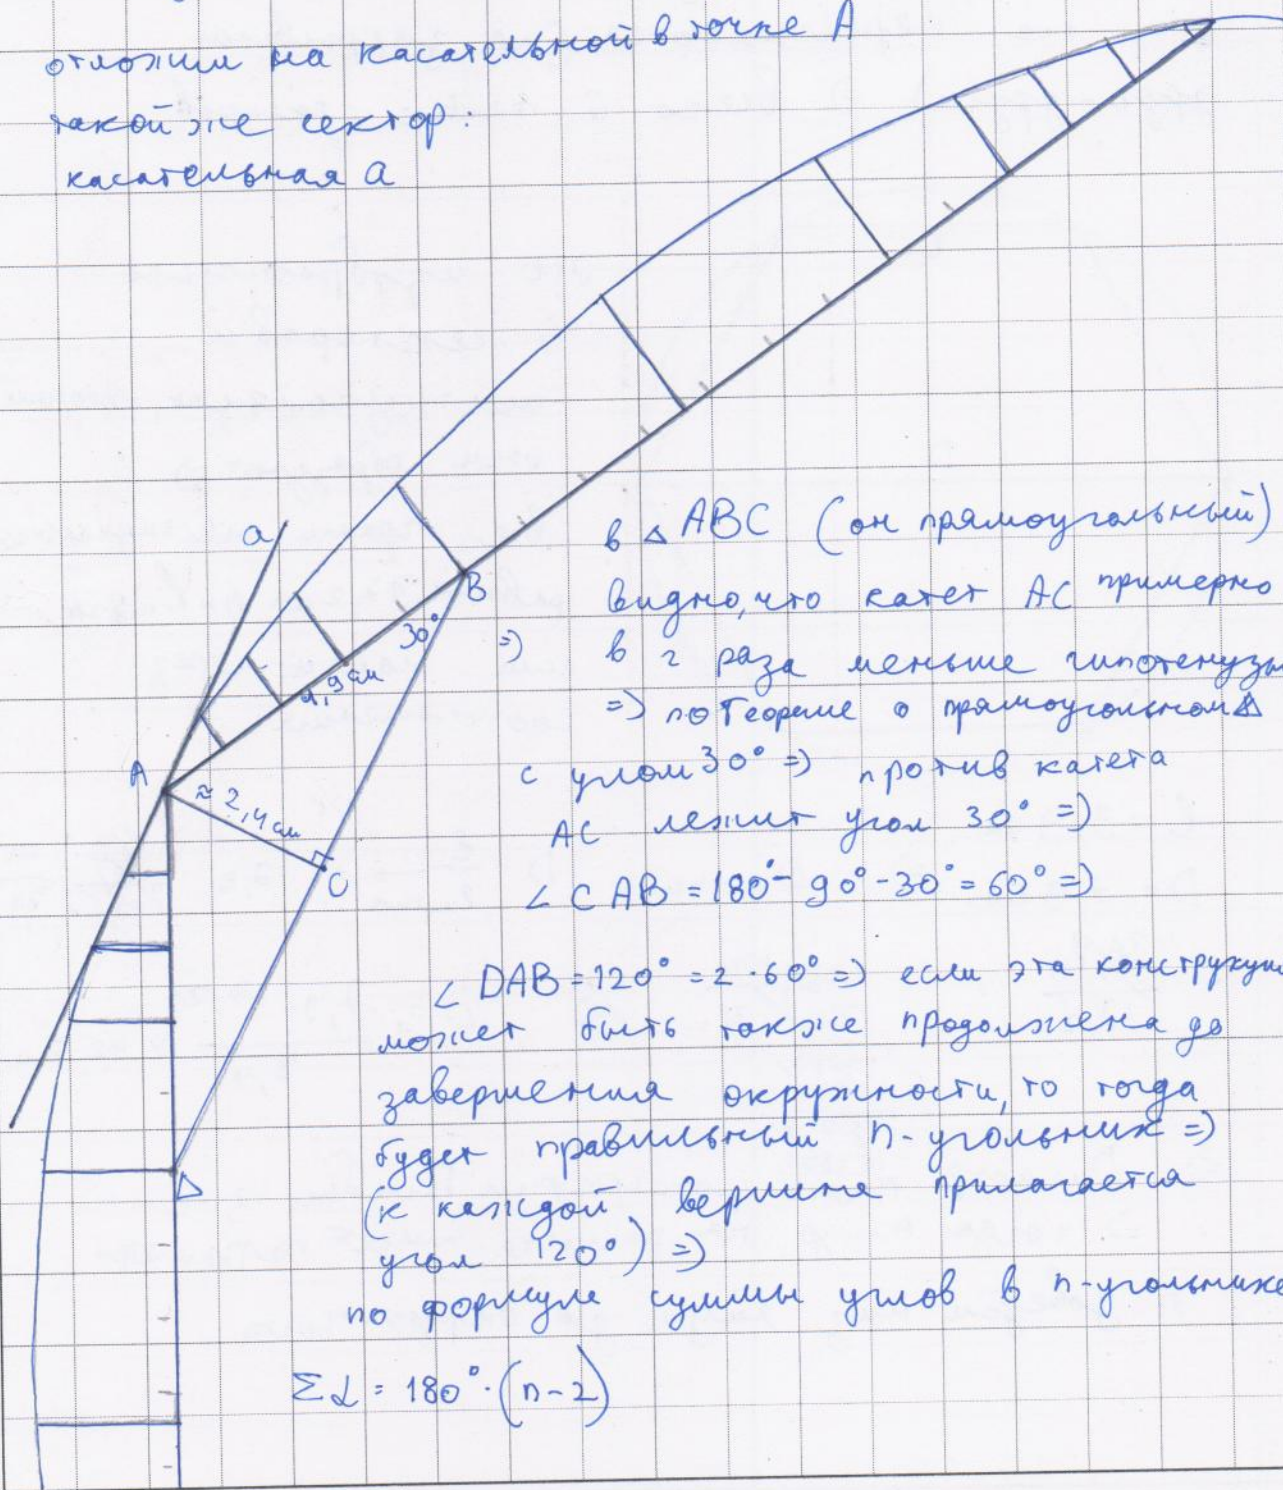 отложим на касательной в точке А
такой же сектор:
касательная а
а
В
30°
4,9 см
А
≈ 2,4 см
С
D
=)
в △ АВС (он прямоугольный)
видно, что катет АС примерно
в 2 раза меньше гипотенузы
=) по теореме о прямоугольном △
с углом 30° =) против катета
АС лежит угол 30° =)
∠ CAB = 180° - 90° - 30° = 60° =)
∠ DAB = 120° = 2 · 60° =) если эта конструкци
может быть также продолжена до
завершения окружности, то тогда
будет правильный n-угольник =)
(к каждой вершине прилагается
угол 120°) =)
по формуле суммы углов в n-угольнике
Σα = 180° · (n-2)